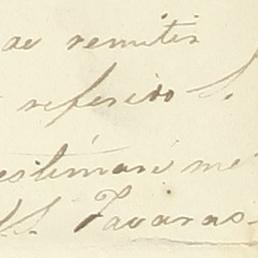 de remitir
referido S.
estimará me
S. Tavares